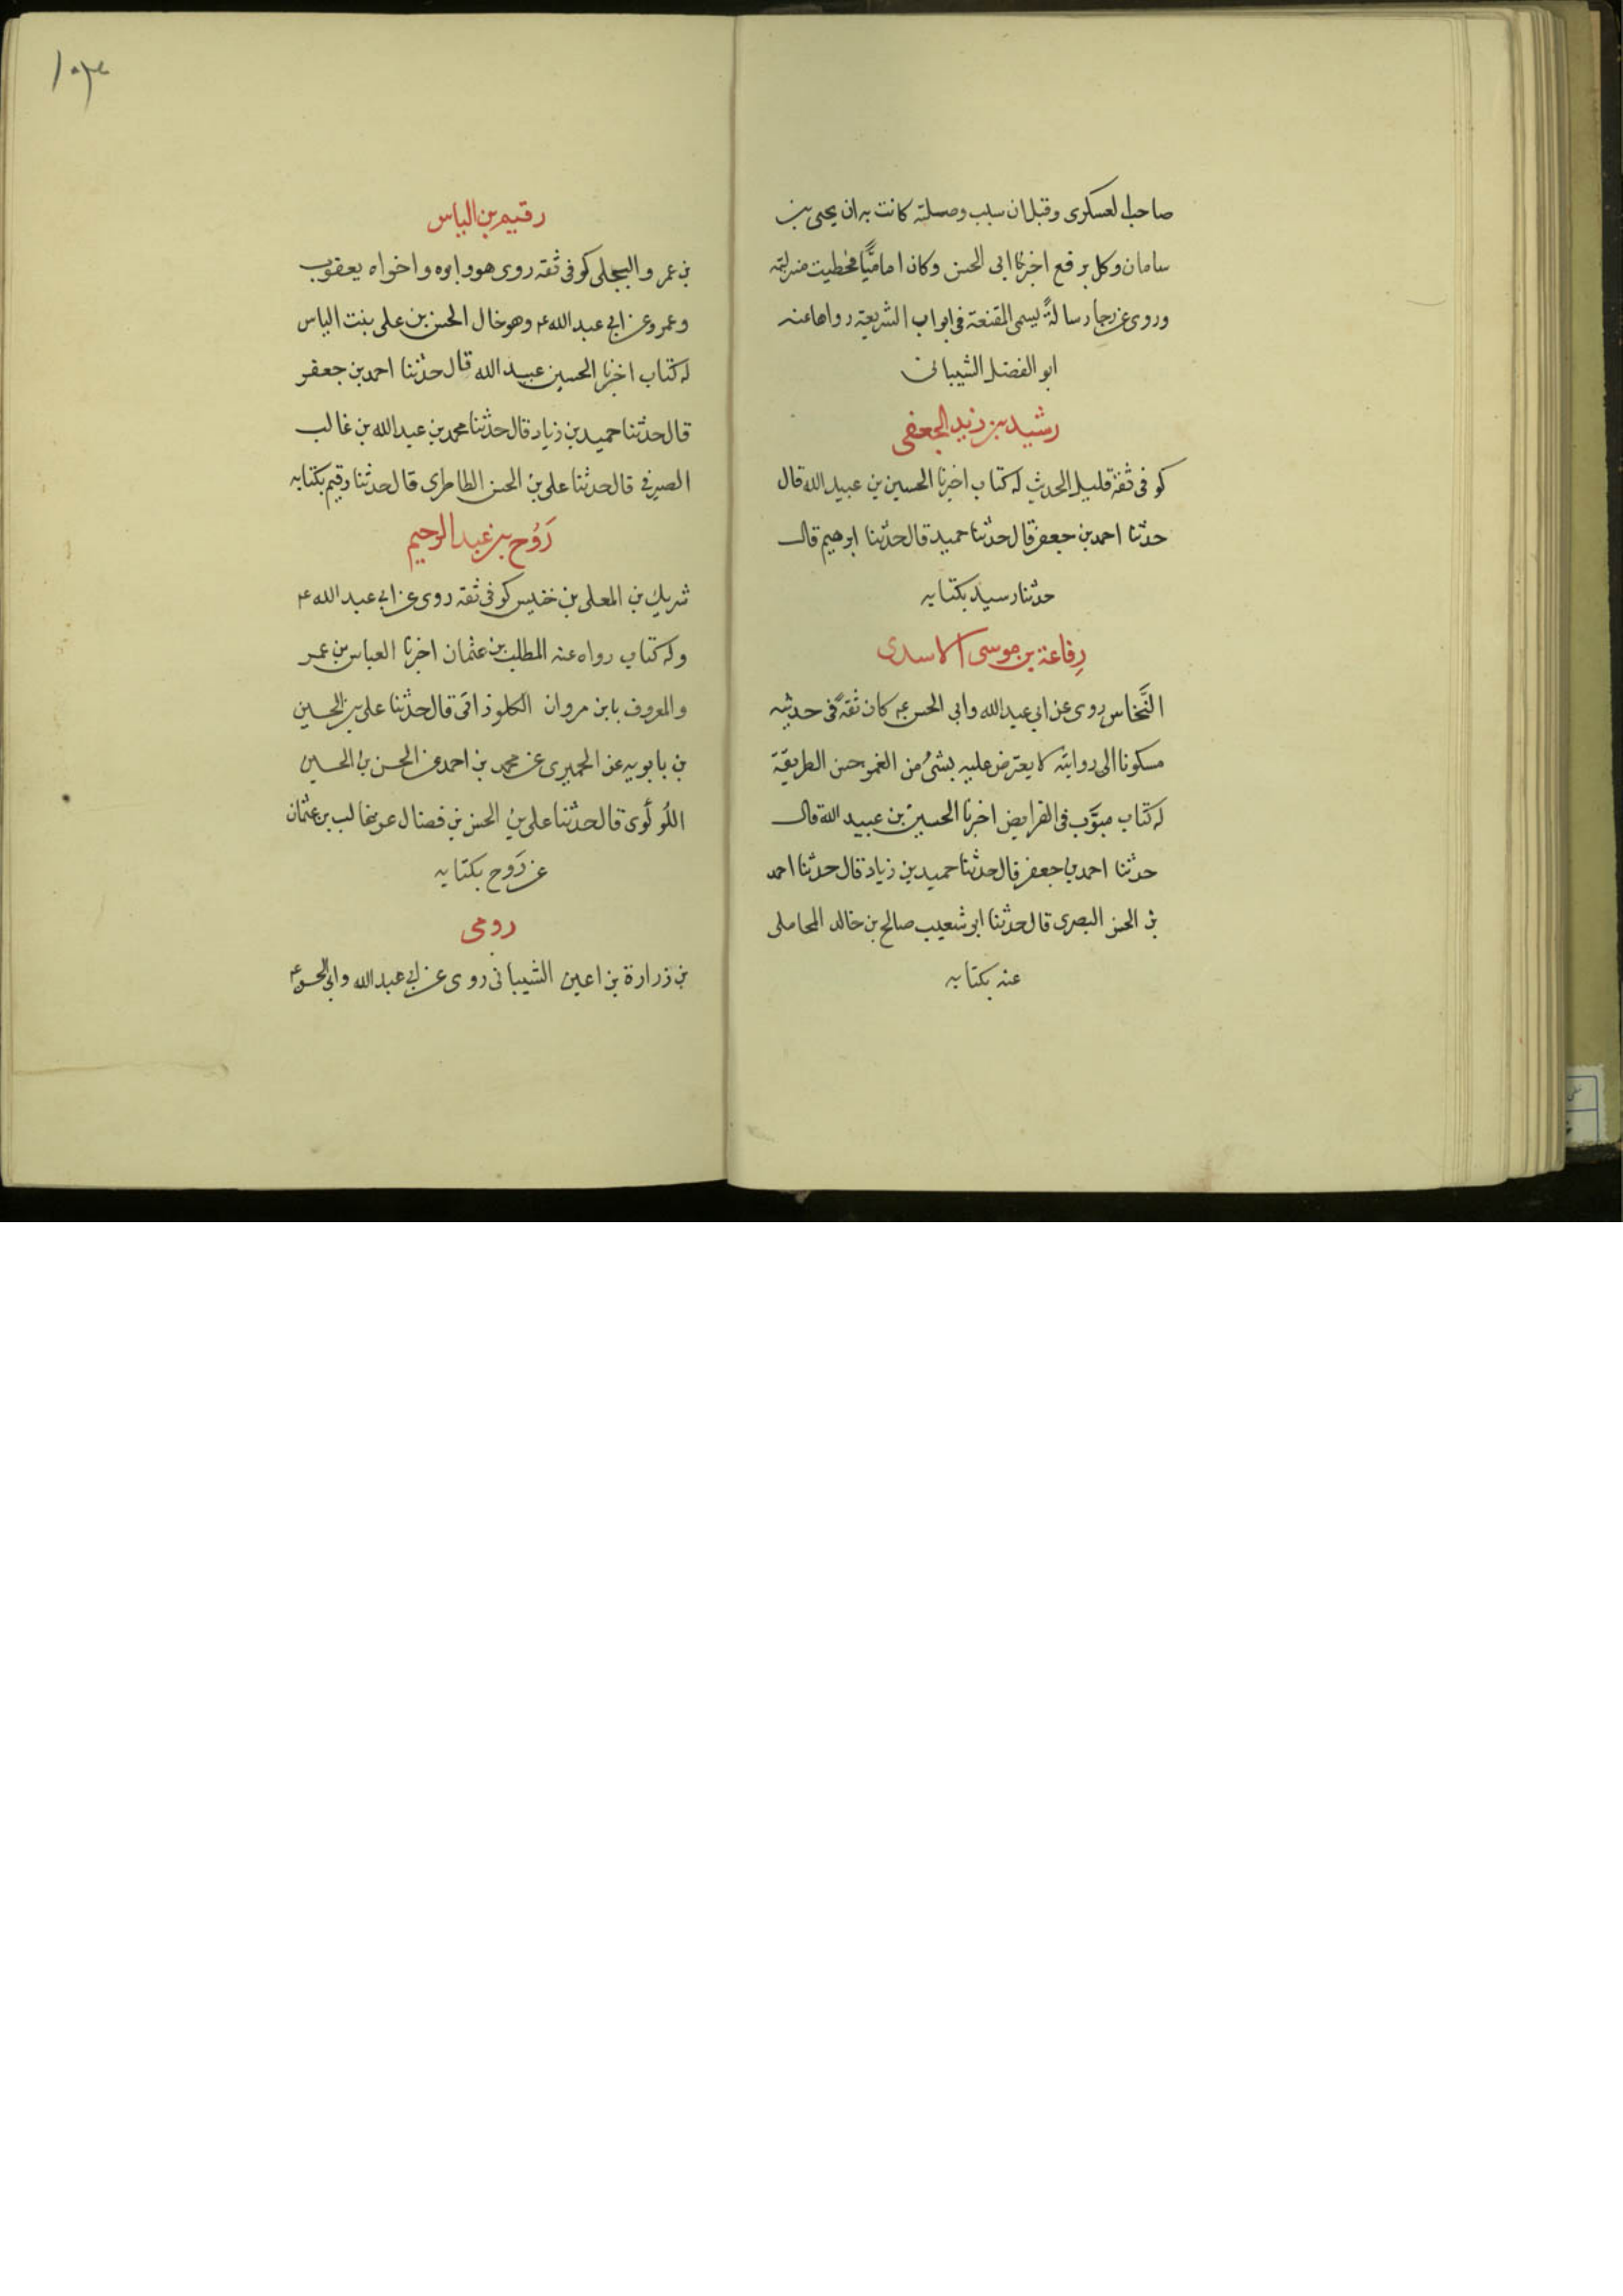 صاحب العسكرى وقيل ان سبب وصلته كانت به ان يحيى بن
سامان وكل برفع اخبرنا ابى الحسن وكان اماميًّا فحظيت منزلته
وروى عن رجا رسالةً يسمى المقنعة فى ابواب الشريعة رواها عنه
ابو الفضل الشيبانى
رشيد بن زيد الجعفى
كوفى ثقة قليل الحديث له كتاب اخبرنا الحسين بن عبيد الله قال
حدثنا احمد بن جعفر قال حدثنا حميد قال حدثنا ابرهيم قال
حدثنا رسيد بكتابه
رِفاعة بن موسى الاسدى
النَّخاس روى عن ابى عبد الله وابى الحسن عم كان ثقةً فى حديثه
مسكونا الى روايته لا يعترض عليه بشىء من الغمو حسن الطريقة
له كتاب مبوَّب فى الفرايض اخبرنا الحسين بن عبيد الله قال
حدثنا احمد بن جعفر قال حدثنا حميد بن زياد قال حدثنا احمد
بن الحسن البصرى قال حدثنا ابو شعيب صالح بن خالد المحاملى
عنه بكتابه
رقيم بن الياس
بن عمرو البجلى كوفى ثقة روى هو وابوه واخواه يعقوب
وعمرو عن ابى عبد الله عم وهو خال الحسن بن على بنت الياس
له كتاب اخبرنا الحسين عبيد الله قال حدثنا احمد بن جعفر
قال حدثنا حميد بن زياد قال حدثنا محمد بن عبد الله بن غالب
الصيرفى قال حدثنا على بن الحسن الطاطرى قال حدثنا رقيم بكتابه
رَوْح بن عبد الرحيم
شريك بن المعلى بن خنيس كوفى ثقة روى عن ابى عبد الله عم
وله كتاب رواه عنه المطلب بن عثمان اخبرنا العباس بن عمر
والمعروف بابن مروان الكلوذانى قال حدثنا على بن الحسين
بن بابويه عن الحميرى عن محمد بن احمد عن الحسن بن الحسين
اللؤلؤى قال حدثنا على بن الحسن بن فضال عن غالب بن عثمان
عن رَوح بكتابه
رومى
بن زرارة بن اعين الشيبانى روى عن ابى عبد الله وابى الحسن عم